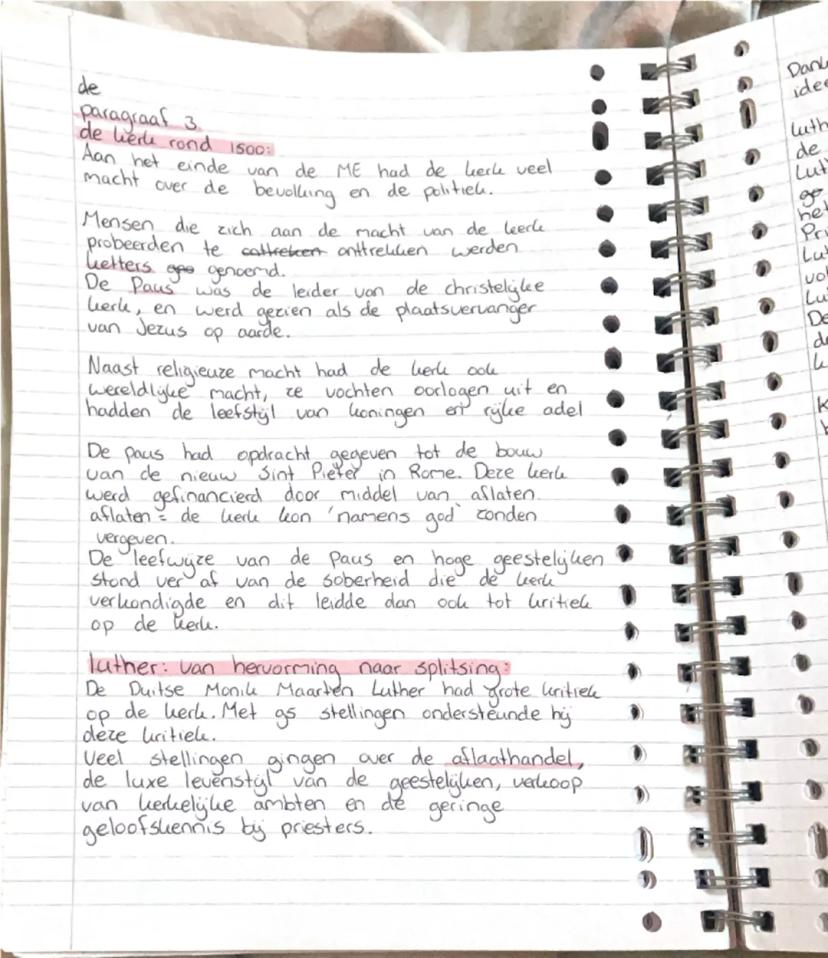 de
paragraaf 3.
de kerk rond 1500:
Aan het einde van de ME had de kerk veel
macht over de bevolking en de politiek.
Mensen die zich aan de macht van de kerk
probeerden te onttrekken werden
ketters genoemd.
De Paus was de leider van de christelijke
kerk, en werd gezien als de plaatsvervanger
van Jezus op aarde.
Naast religieuze macht had de kerk ook
wereldlijke macht, ze vochten oorlogen uit en
hadden de leefstijl van koningen en rijke adel
De paus had opdracht gegeven tot de bouw
van de nieuw Sint Pieter in Rome. Deze kerk
werd gefinancierd door middel van aflaten.
aflaten = de kerk kon 'namens god' zonden
vergeven.
De leefwijze van de Paus en hoge geestelijken
stond ver af van de soberheid die de kerk
verkondigde en dit leidde dan ook tot kritiek
op de kerk.
luther: van hervorming naar splitsing:
De Duitse Monik Maarten Luther had grote kritiek
op de kerk. Met 95 stellingen ondersteunde hij
deze kritiek.
Veel stellingen gingen over de aflaathandel,
de luxe levenstijl van de geestelijken, verkoop
van kerkelijke ambten en de geringe
geloofskennis bij priesters.